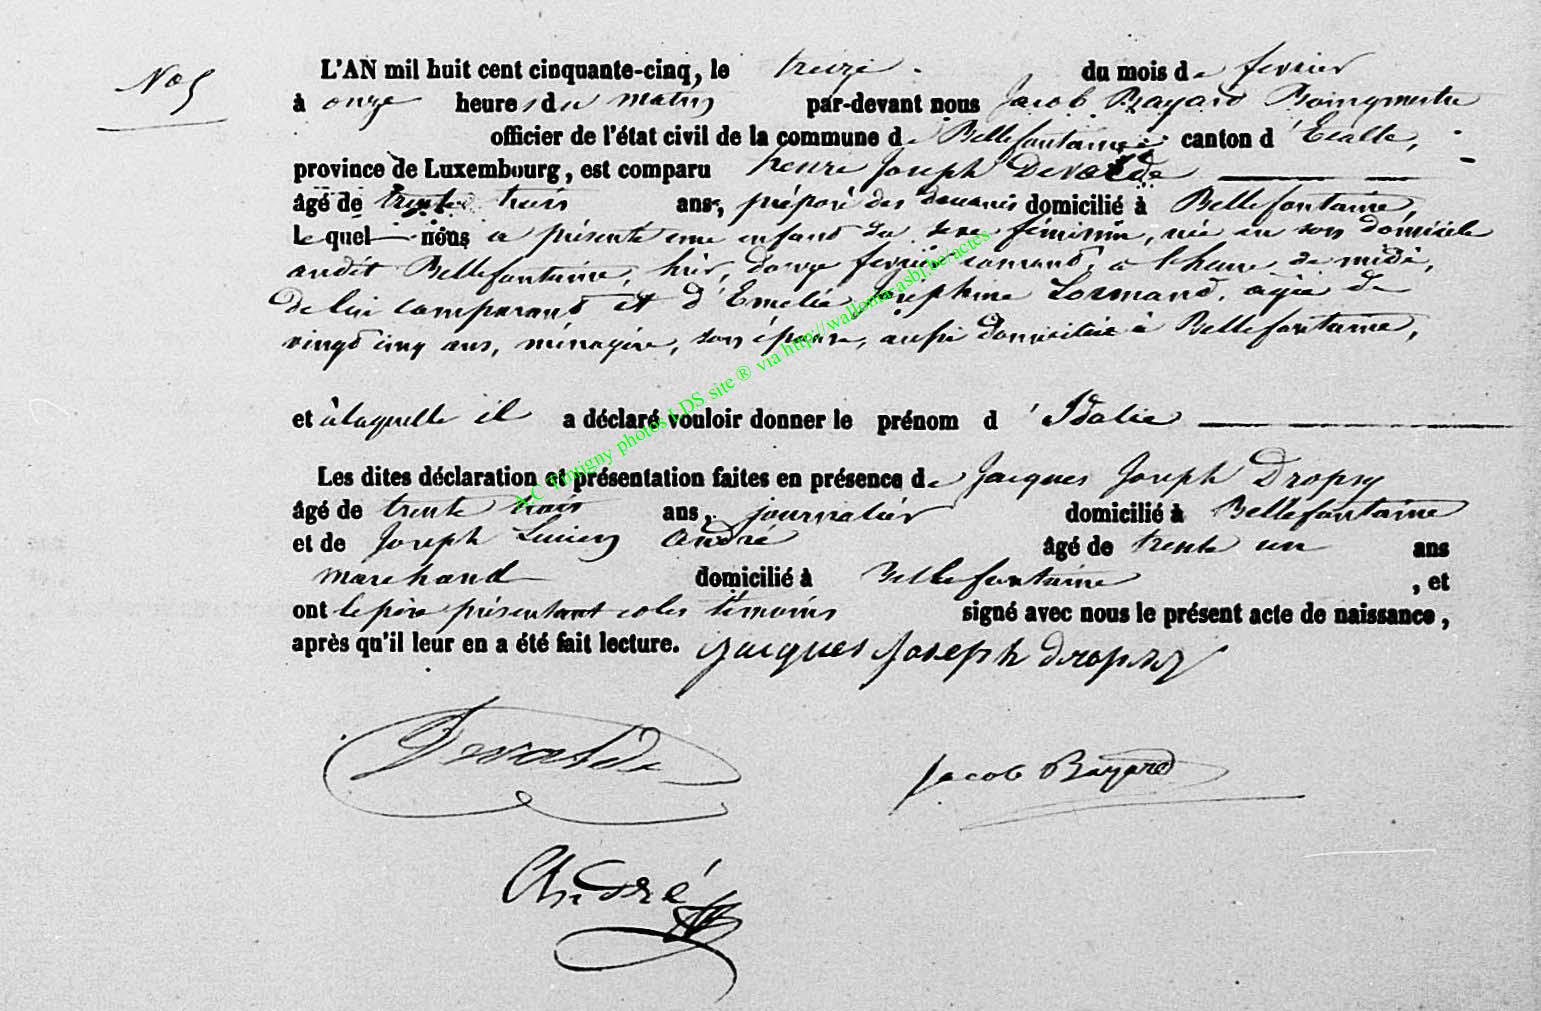 No 5
L'AN mil huit cent cinquante-cinq, le treize du mois de fevrier
à onze heures du matin par-devant nous Jacob Bayard Bourgmestre
officier de l'état civil de la commune de Bellefontaine canton d'Etalle,
province de Luxembourg, est comparu henri Joseph Devalde
âgé de trente trois ans, préposé des douanes domicilié à Bellefontaine,
lequel nous a présenté une enfant du sexe féminin, née en son domicile
audit Bellefontaine, hier, douze fevrier courant, a l'heure de midi,
de lui comparant et d'Emelie Joséphine Lormand, agée de
vingt cinq ans, ménagère, son épouse, aussi domiciliée à Bellefontaine,
et à laquelle il a déclaré vouloir donner le prénom d'Idalie
Les dites déclaration et présentation faites en présence de Jacques Joseph Dropsy
âgé de trente trois ans, journalier domicilié à Bellefontaine
et de Joseph Lucien André âgé de trente un ans
marchand domicilié à Bellefontaine, et
ont le père présentant et les témoins signé avec nous le présent acte de naissance,
après qu'il leur en a été fait lecture. Jacques Joseph Dropsy
Devalde
Jacob Bayard
André
A.C Tintigny photos LDS site ® via http://wallonicasbl.be/actes